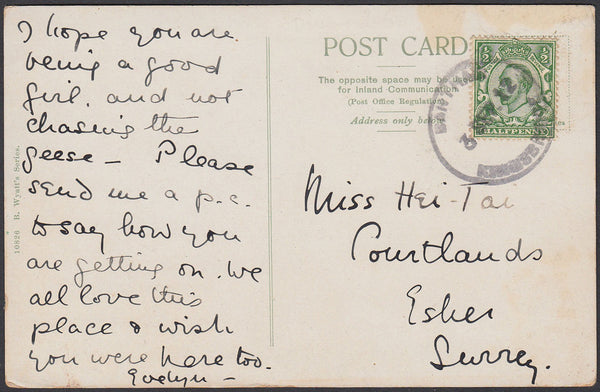 I hope you are
being a good
girl. and not
chasing the
geese – Please
send me a p.c.
to say how you
are getting on. We
all love this
place & wish
you were here too.
Evelyn –
10826 R. Wyatt's Series.
POST CARD
The opposite space may be used
for Inland Communication
(Post Office Regulation)
Address only below
½ ½
HALFPENNY
Miss Hei-Tai
Courtlands
Esher
Surrey.